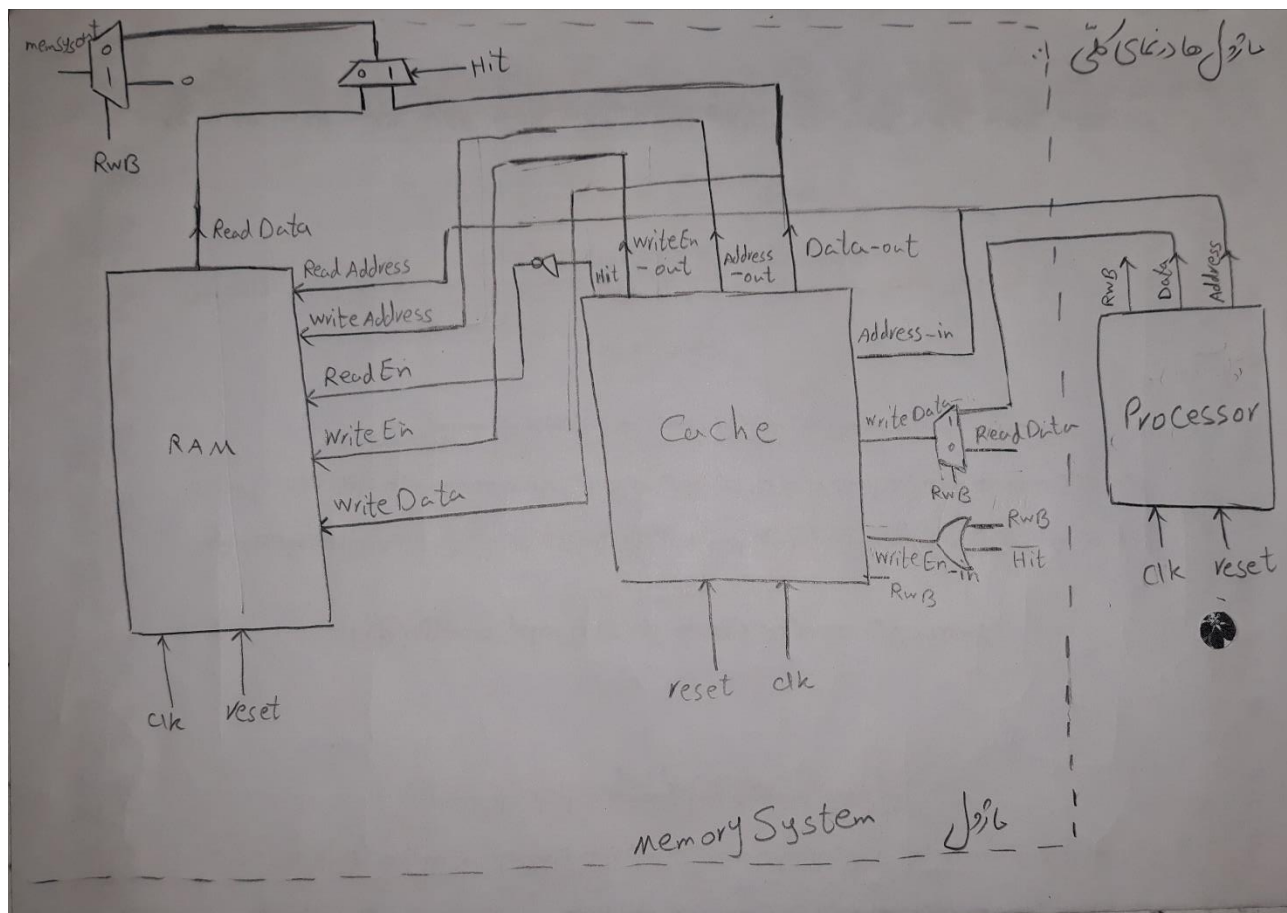 ماژول ها در نمای کلّی :
memsysout
0
1
0
RwB
0 1
Hit
Read Data
Read Address
Write Address
Read En
Write En
Write Data
RAM
Clk
reset
Hit
WriteEn
-out
Address
-out
Data-out
Cache
Address-in
Write Data
1
0
Read Data
RwB
RwB
Hit
WriteEn_in
RwB
reset
clk
RwB
Data
Address
Processor
Clk
reset
Memory System ماژول